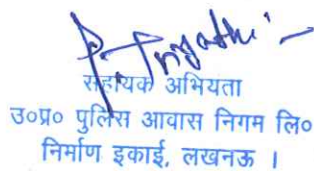 P. Tripathi
सहायक अभियता
उ०प्र० पुलिस आवास निगम लि०
निर्माण इकाई, लखनऊ ।